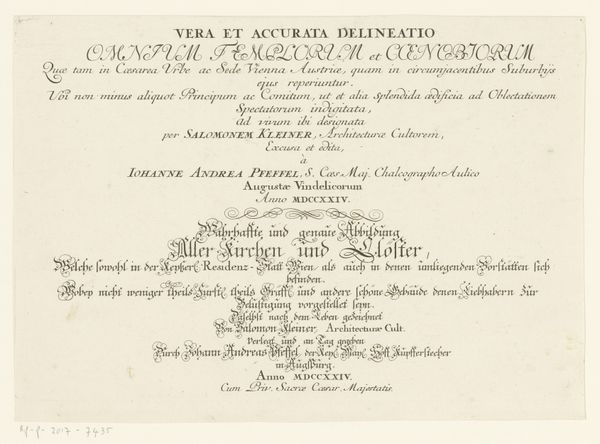 VERA ET ACCURATA DELINEATIO
OMNIUM TEMPLORUM et COENOBIORUM
Quæ tam in Cæsarea Urbe ac Sede Vienna Austriæ, quam in circumjacentibus Suburbijs
ejus reperiuntur.
Ubi non minus aliquot Principum ac Comitum, ut et alia splendida ædificia ad Oblectationem
Spectatorum indigitata,
ad vivum ibi designata
per SALOMONEM KLEINER, Architecturæ Cultorem,
Excusa et edita,
à
IOHANNE ANDREA PFEFFEL, S. Cæs. Maj. Chalcographo Aulico
Augustæ Vindelicorum
Anno MDCCXXIV.
Wahrhaffte und genaue Abbildung
Aller Kirchen und Clöster,
Welche sowohl in der Keyßerl. Residenz-Statt Wien, als auch in denen umliegenden Vorstätten sich
befinden.
Wobey nicht weniger theils Fürstl. theils Gräffl. und andere schöne Gebäude denen Liebhabern zur
Belüstigung vorgestellet seyn.
Daselbst nach dem Leben gezeichnet
Von Salomon Kleiner, Architecturæ Cult.
verlegt und an Tag gegeben
Durch Johann Andreas Pfeffel, der Keyß. May. Hoff Kupfferstecher
in Augspurg.
Anno MDCCXXIV.
Cum Priv. Sacræ Cæsar. Majestatis.
RP-P-2017-7435